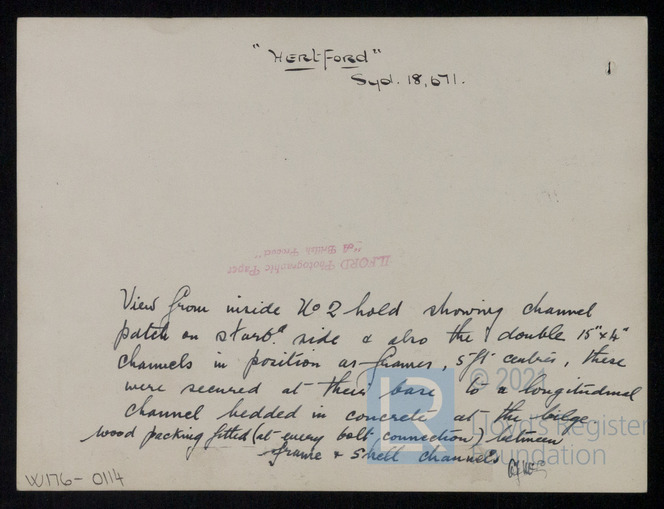 "HERTFORD"
Syd. 18,671.
1
ILFORD Photographic Paper
"of British Proceed"
View from inside No 2 hold showing channel
patch on starbd side & also the double 15"x4"
channels in position as frames, 5ft centres, these
were secured at their base to a longitudinal
channel bedded in concrete at the bilge
wood packing fitted (at every bolt connection) between
frame & shell channels
© 2021
Lloyd's Register
Foundation
LR
W176-0114